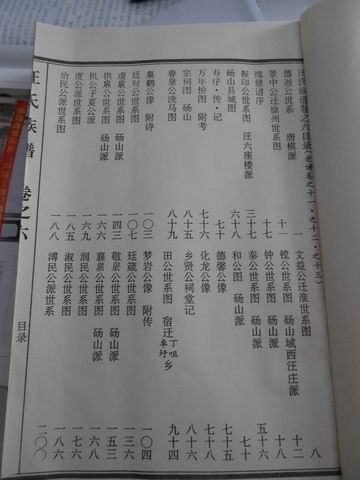 汪氏族谱卷之六目录(老谱卷之十一·之十二·之十三)
唐模派 一 文益公迁淮世系图 八
景中公迁徐州世系图 十一 镗公世系图 砀山城西汪庄派 十二
续修谱序 钟公世系图 砀山派 五十六
振印公世系图 汪六座楼派 三十七 泰公世系图 砀山派
砀山县城图 六十八 和公图 砀山派 七十
寿序·传·记 德馨公像 七十五
万年桥图 附考 七十六 化龙公像 七十八
宗祠图 砀山 乡贤公祠堂记 八十七
春泉公洗马图 八十九 田公世系图 宿迁丁咀乡卓圩 九十四
枭鹤公像 附诗 一〇三 梦岩公像 附传 一〇四
廷对公世系图 一〇七 廷葳公世系图 一三六
虔泉公世系图 砀山派 一四三 敬泉公世系图 砀山派 一五三
供泉公世系图 砀山派 一六六 襄泉公世系图 砀山派 一六八
机公子夏公派 一六九 润民公世系图 一七六
度公派世系图 一八五 淑民公世系图 一八六
治民公派世系图 一八八 溥民公派世系 二〇〇
汪氏族谱 卷之六 目录